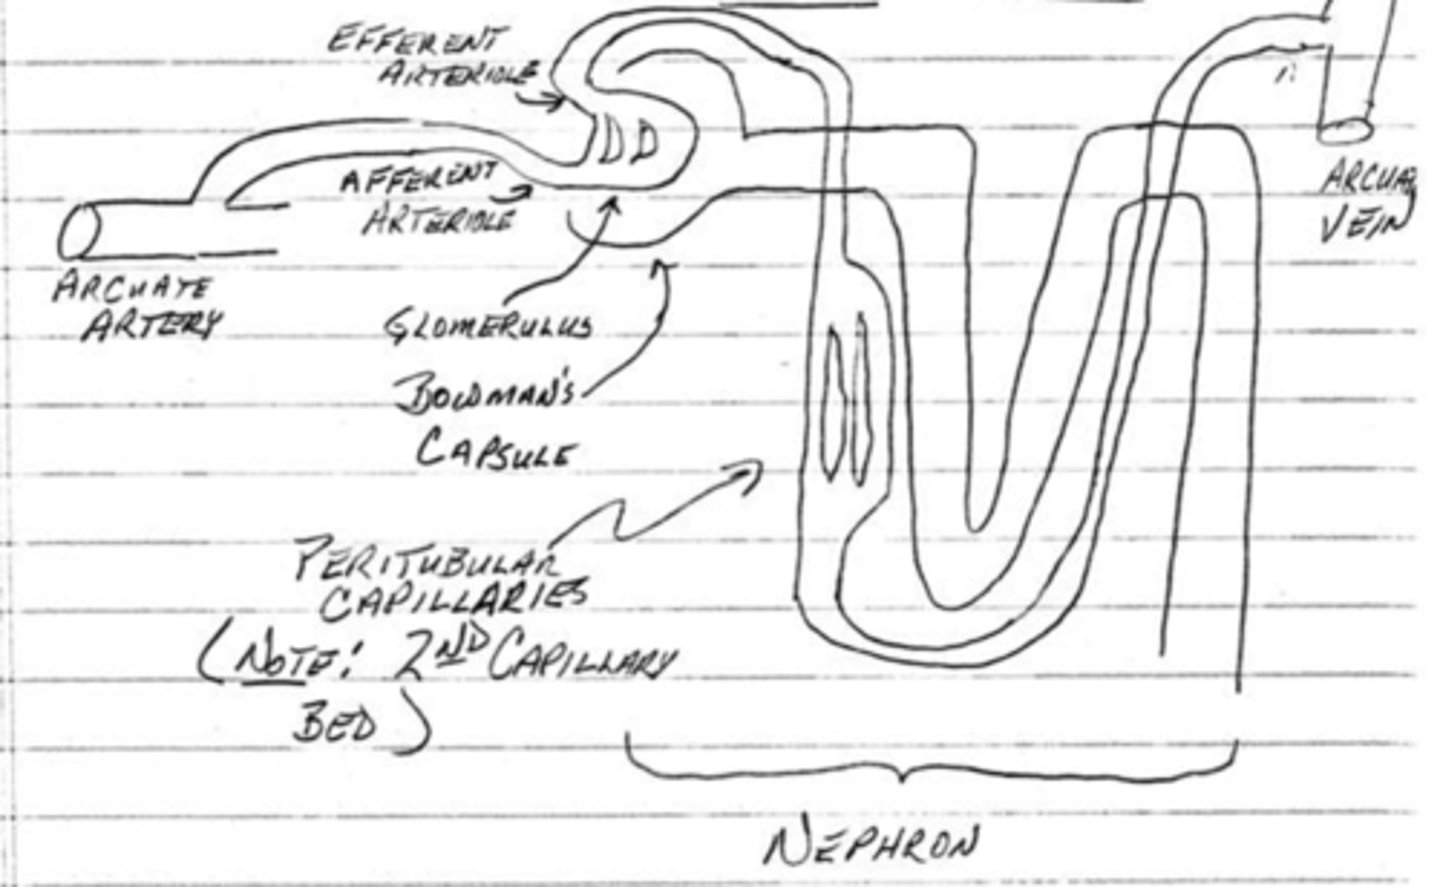 EFFERENT
ARTERIOLE
AFFERENT
ARTERIOLE
ARCUATE
ARTERY
GLOMERULUS
BOWMAN'S
CAPSULE
PERITUBULAR
CAPILLARIES
(NOTE: 2ND CAPILLARY
BED)
VEIN
NEPHRON